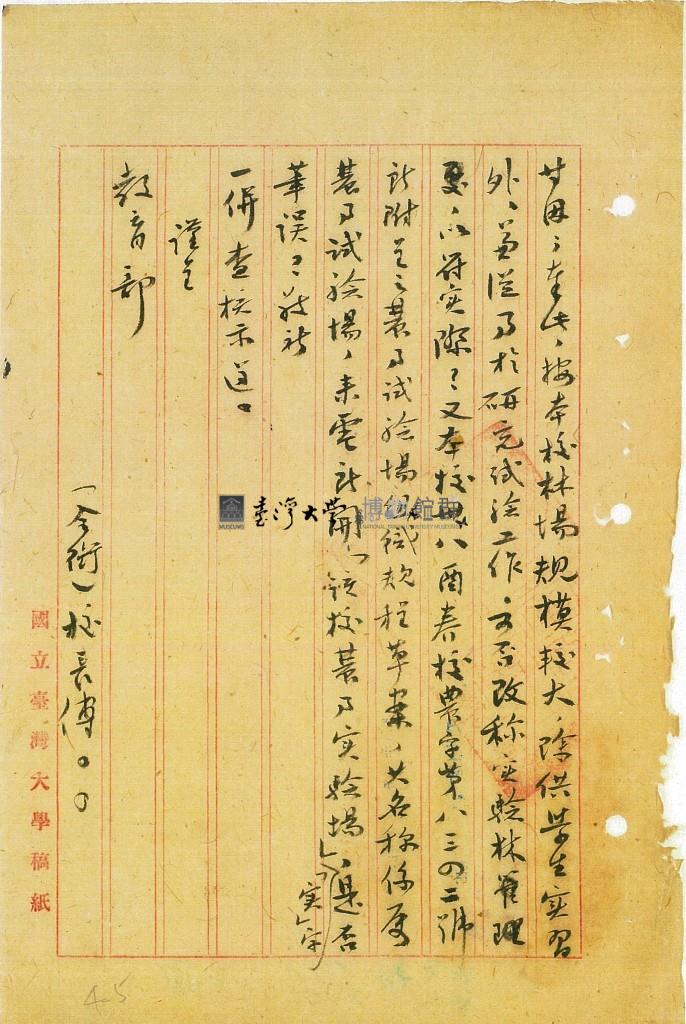 甘因、奉此、按本校林場規模較大、除供學生實習
外、並從事於研究試驗工作、可否改称實驗林管理
處、以符实際、又本校卅八酉春校農字第八三四二號
所附呈之農事試驗場組織規程草案、其名称係為
農事試驗場、來電所開「該校農事实驗場」、是否
「实」字
筆誤、敬祈
一併查核示遵。
謹呈
教育部
(全銜)校長傅。。
國立臺灣大學稿紙
臺灣大學
博物館群
MUSEUMS
NATIONAL TAIWAN UNIVERSITY MUSEUMS
45